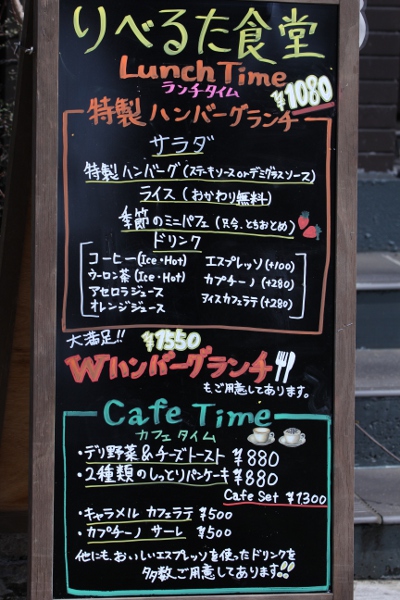 りべるた食堂
Lunch Time
ランチタイム
¥1080
特製 ハンバーグランチ
サラダ
特製ハンバーグ(ステーキソースorデミグラスソース)
ライス (おかわり無料)
季節のミニパフェ (只今、とちおとめ)
ドリンク
コーヒー(Ice・Hot)
ウーロン茶(Ice・Hot)
アセロラジュース
オレンジジュース
エスプレッソ(+100)
カプチーノ(+280)
アイスカフェラテ(+280)
大満足!!
¥1550
Wハンバーグランチ
もご用意してあります。
Cafe Time
カフェタイム
・デリ野菜&チーズトースト ¥880
・2種類のしっとりパンケーキ ¥880
Cafe Set ¥1300
・キャラメル カフェラテ ¥500
・カプチーノ サーレ ¥500
他にも、おいしいエスプレッソを使ったドリンクを
多数ご用意してあります。